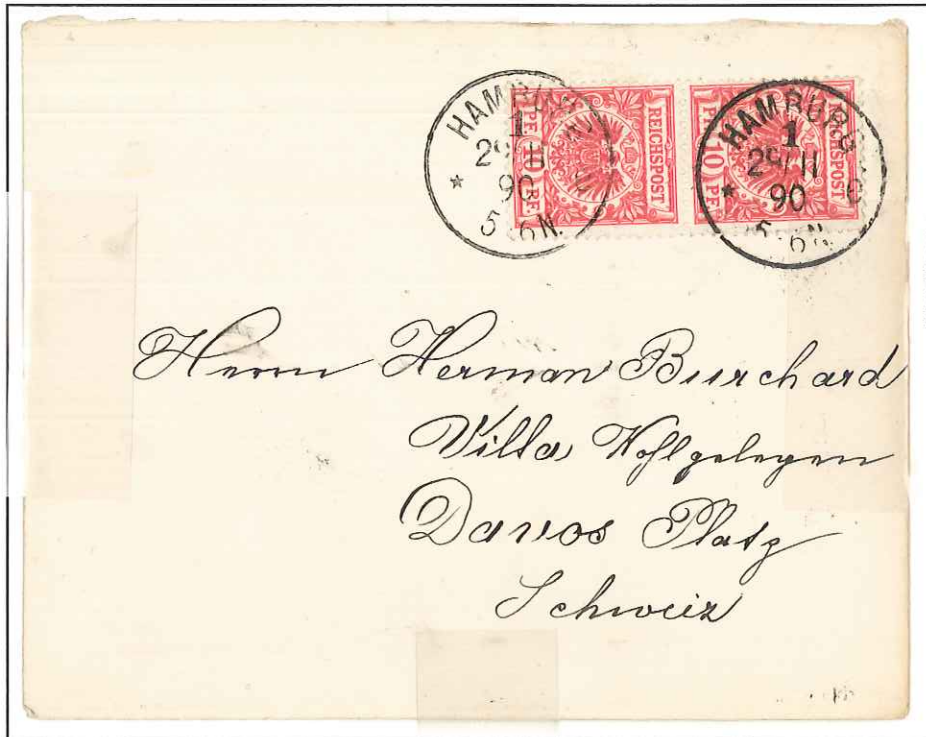 HAMBURG
1
29/11
90
5-6N.
*
REICHSPOST
10
PF.
REICHSPOST
PF. 10 PF.
HAMBURG
1
29/11
90
*
5-6N.
Herrn Herman Burchard
Villa Wohlgelegen
Davos Platz
Schweiz